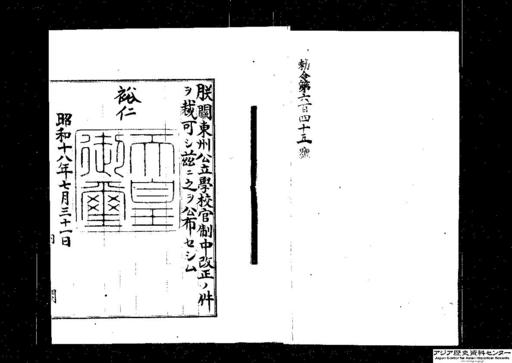 勅令第六百四十五號
朕關東州公立學校官制中改正ノ件
ヲ裁可シ茲ニ之ヲ公布セシム
裕仁
天皇
御璽
昭和十八年七月三十一日
アジア歴史資料センター
Japan Center for Asian Historical Records